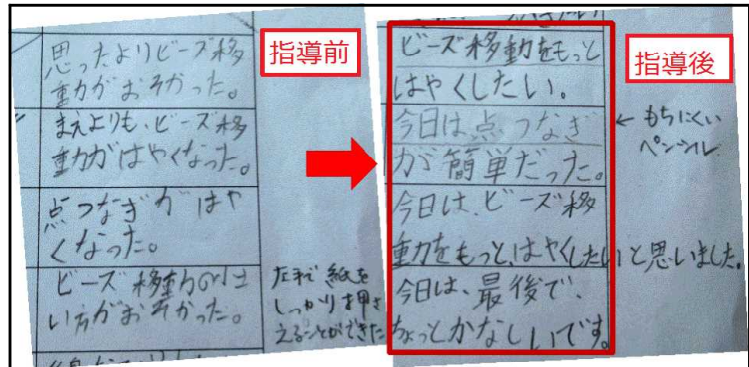 指導前
思ったよりビーズ移
動がおそかった。
まえよりも、ビーズ移
動がはやくなった。
点つなぎがはや
くなった。
ビーズ移動の仕
い方がおそかった。
左手で紙を
しっかり押さ
えることができた
指導後
ビーズ移動をもっと
はやくしたい。
今日は点つなぎ
が簡単だった。
←もちにくい
ペンシル
今日は、ビーズ移
動をもっと、はやくしたいと思いました。
今日は、最後で、
ちょっとかなしいです。